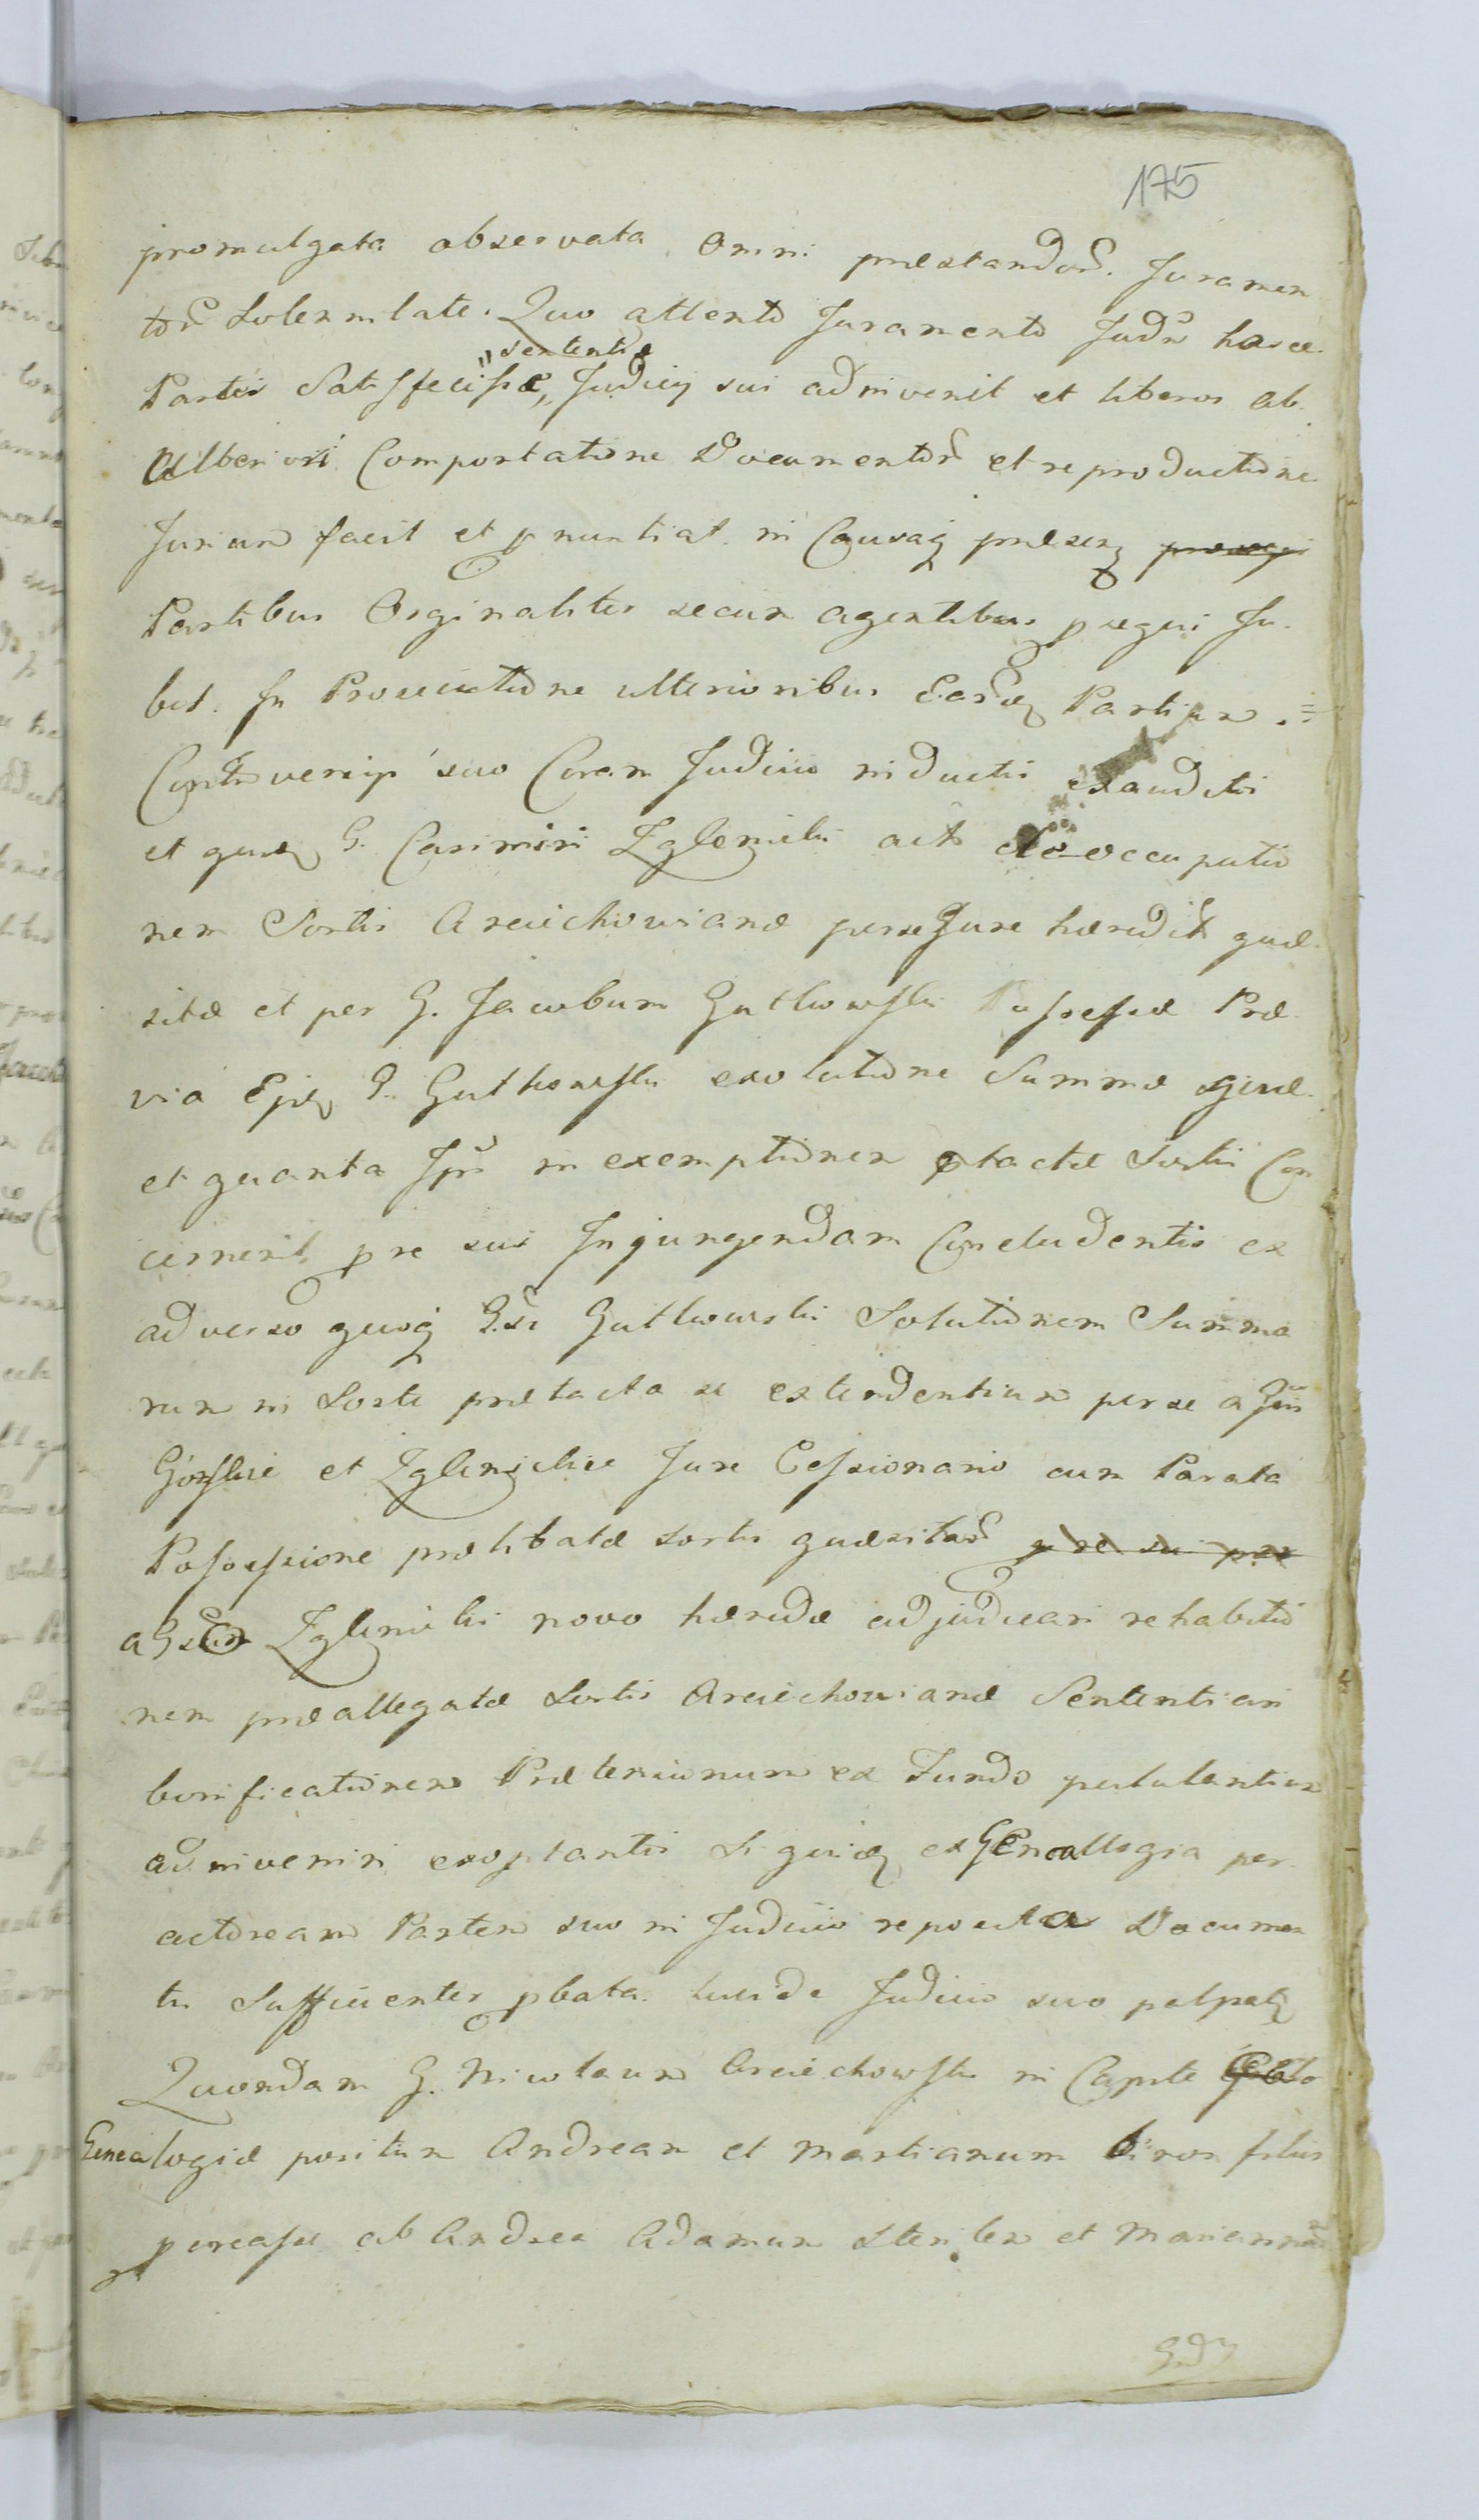 175
promulgata observata omni præstandor. Juramen
tor Solennitate. Quo attento Juramento Judm hasce
sententiæ
Partes Satisfecisse, Judicij sui adinvenit et liberos ab
Ulteriori Comportatione Documentor et reproductione
Jurium facit et pnuntiat. in Causaq præsenq
Partibus Orginaliter secum agentibus psequi Ju
bet. In Prosecutione ulterioribus Earq Partium
Controversijs suo Coram Judicio inductis exauditis
et quia G. Casimiri Zglenicki acto de occupatio
nem Sortis Arciechowianæ per se Jure hæredito quæ
sitæ et per G. Jacobum Gutkowski Possessæ Præ
via Ejdq G. Gutkowski exolutione Summæ
et quanta Jpsi in exemptionem ptactæ Sortis Con
cernerit p re sui Injungendam Concludentis ex
adverso quoq Gsi Gutkowski Solutionem Summa
rum in Sorte prætacta se extendentium per se a Gsis
Górskie et Zglinickie Jure Cessionario cum Parata
Possessione prælibatæ sortis quæsitar p re sui per
a Gso Zglinicki novo hærede adjudicari rehabitio
nem præallegatæ Sortis Arciechowianæ Sententiari
bonificationem Prætensionum ex Fundo petulantium
adinveniri exoptantis Siquidq ex Genealogia per
actoream Partem suo in Judicio reposita Documen
tis Sufficienter pbata. lucide Judicio suo palpatq
Quondam G. Nicolaum Arciechowski in Capite
Genealogiæ positum Andream et Martianum binos filios
pcreasse ab Andrea Adamum Sterilem et Mariannam